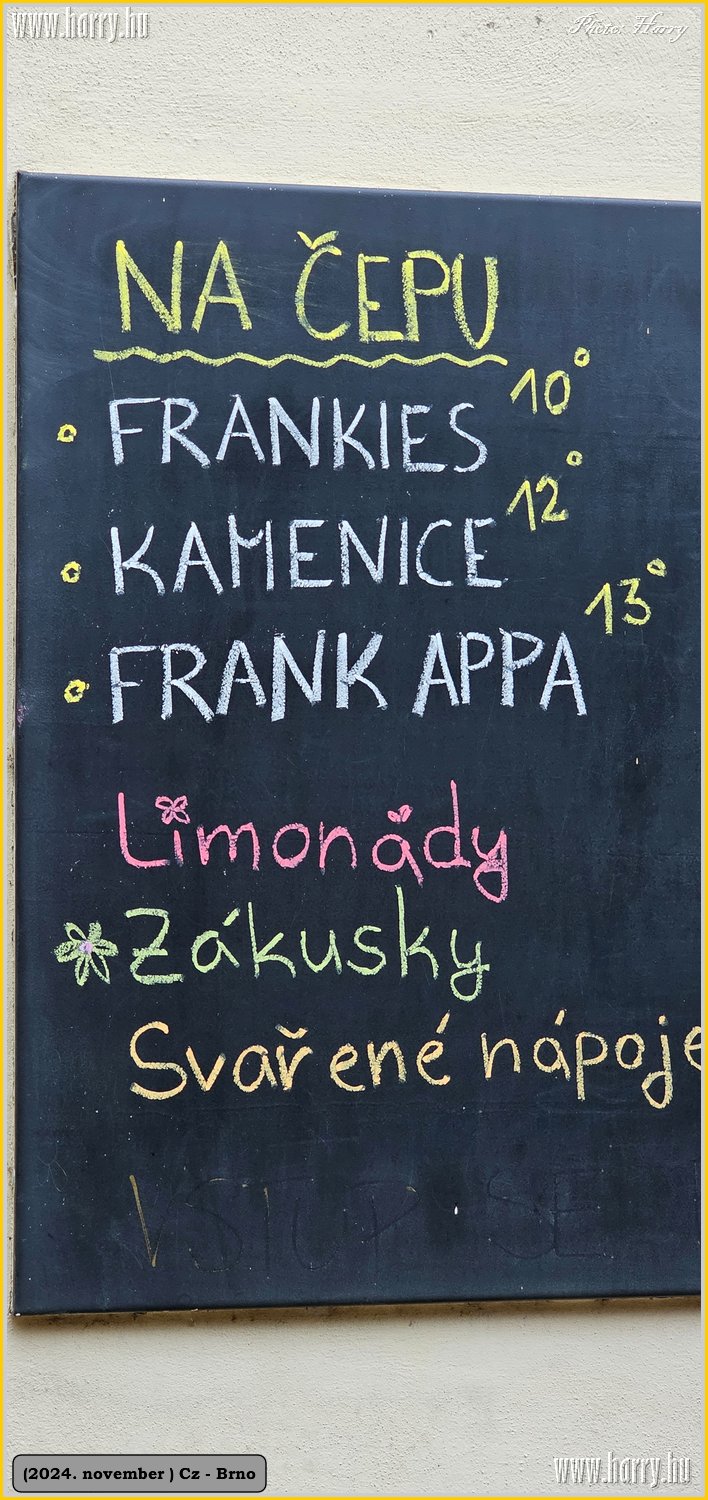 www.horry.hu
Photo: Horry
NA ČEPU
FRANKIES 10°
KAMENICE 12°
FRANK APPA 13°
Limonády
Zákusky
Svařené nápoje
VSTUP SE
www.horry.hu
(2024. november ) Cz - Brno